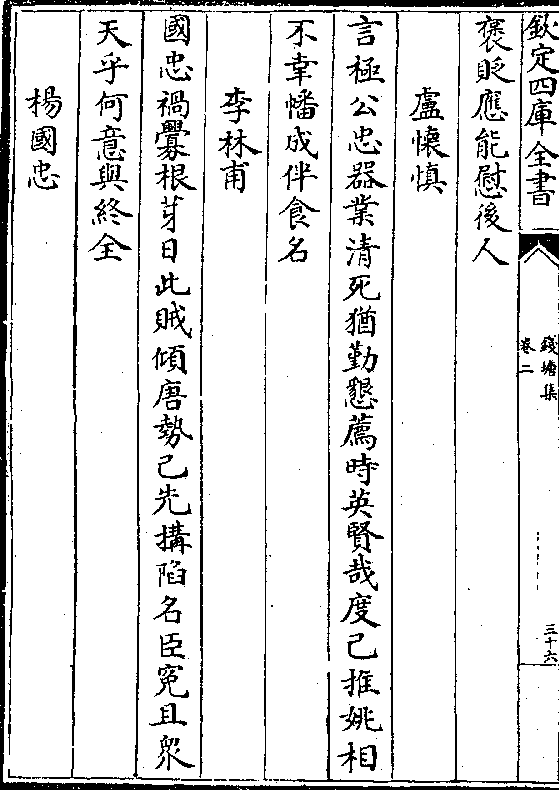 欽定四庫全書
錢塘集
卷二
三十六
褒貶應能慰後人
盧懷慎
言極公忠器業清死猶勤懇薦時英賢哉度已推姚相
不幸幡成伴食名
李林甫
國忠禍釁根芽日此賊傾唐勢已先搆陷名臣寃且衆
天乎何意與終全
楊國忠